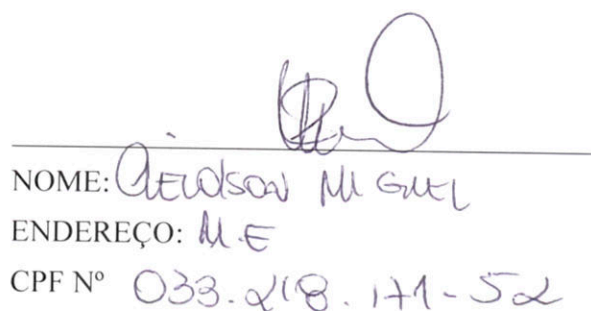 NOME: Gleidson MIGUEL
ENDEREÇO: M.E
CPF Nº 033.218.171-52